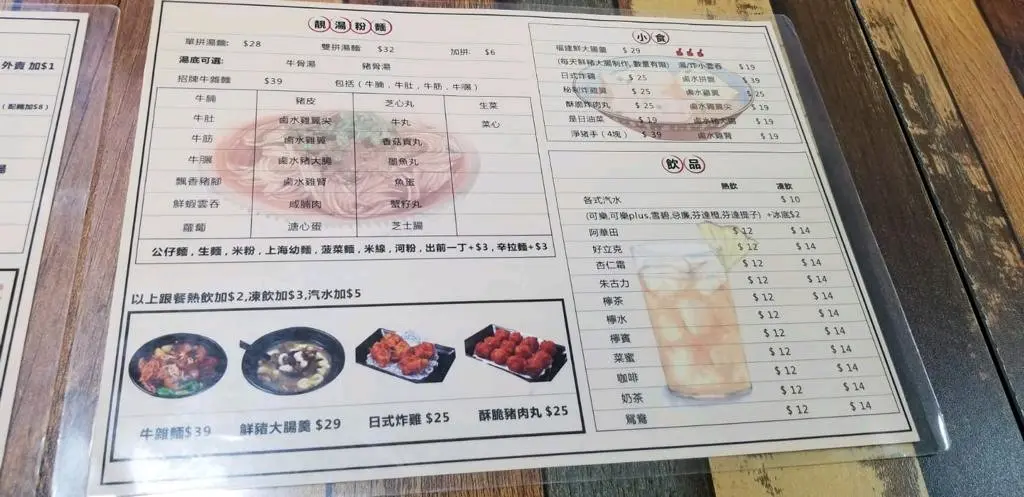 外賣 加$1
(配麵加$8)
靚湯粉麵
單拼湯麵: $28 雙拼湯麵 $32 加拼: $6
湯底可選: 牛骨湯 豬骨湯
招牌牛雜麵 $39 包括 (牛腩,牛肚,牛筋,牛𦟌)
牛腩 豬皮 芝心丸 生菜
牛肚 鹵水雞翼尖 牛丸 菜心
牛筋 鹵水雞翼 香菇貢丸
牛𦟌 鹵水豬大腸 墨魚丸
飄香豬腳 鹵水雞腎 魚蛋
鮮蝦雲吞 咸腩肉 蟹籽丸
蘿蔔 溏心蛋 芝士腸
公仔麵,生麵,米粉,上海幼麵,菠菜麵,米線,河粉,出前一丁+$3,辛拉麵+$3
以上跟餐熱飲加$2,凍飲加$3,汽水加$5
牛雜麵$39 鮮豬大腸羹 $29 日式炸雞 $25 酥脆豬肉丸 $25
小食
福建鮮大腸羹 $ 29
(每天鮮豬大腸制作,數量有限) 湯/炸小雲吞 $ 19
日式炸雞 $ 25 鹵水拼盤 $ 39
秘製炸雞翼 $ 25 鹵水雞翼 $ 25
酥脆炸肉丸 $ 25 鹵水雞翼尖 $ 19
是日油菜 $ 19 鹵水豬大腸 $ 19
淨豬手 (4塊) $ 39 鹵水雞腎 $ 19
飲品
熱飲 凍飲
各式汽水 $ 10
(可樂,可樂plus,雪碧,忌廉,芬達橙,芬達提子) +冰底$2
阿華田 $ 12 $ 14
好立克 $ 12 $ 14
杏仁霜 $ 12 $ 14
朱古力 $ 12 $ 14
檸茶 $ 12 $ 14
檸水 $ 12 $ 14
檸賓 $ 12 $ 14
菜蜜 $ 12 $ 14
咖啡 $ 12 $ 14
奶茶 $ 12 $ 14
鴛鴦 $ 12 $ 14